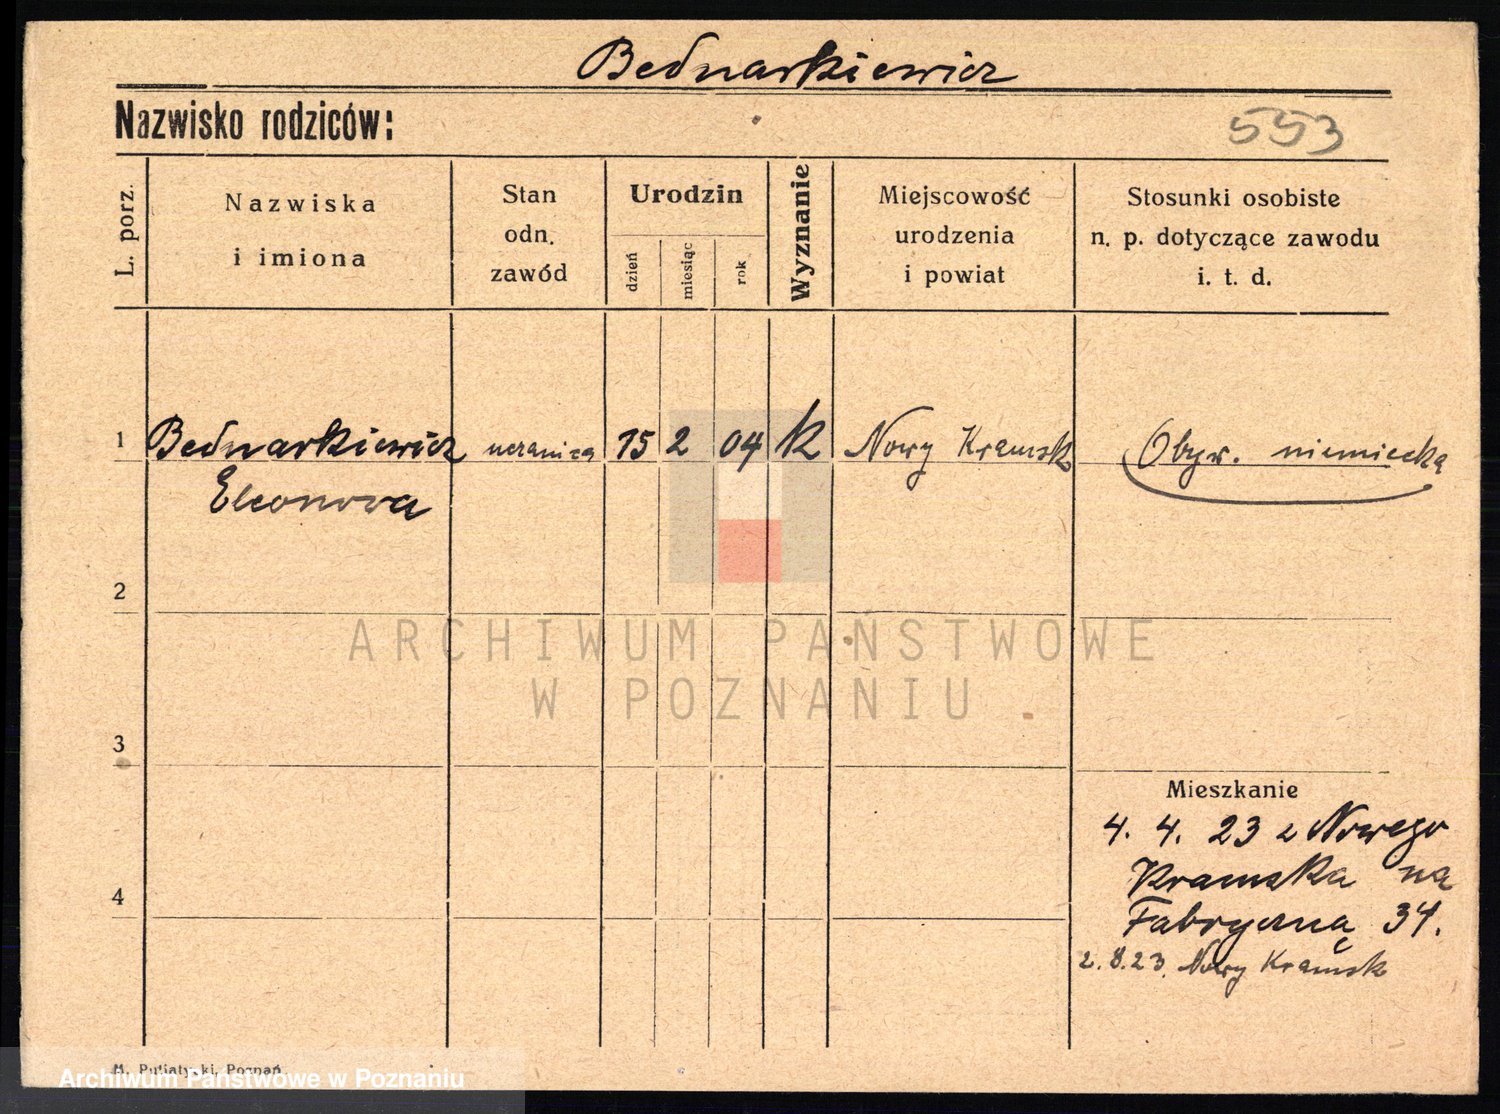 Bednarkiewicz
Nazwisko rodziców:
553
L. porz.
Nazwiska
i imiona
Stan
odn.
zawód
Urodzin
dzień
miesiąc
rok
Wyznanie
Miejscowość
urodzenia
i powiat
Stosunki osobiste
n. p. dotyczące zawodu
i. t. d.
1 Bednarkiewicz uczenica 15 2 04 k Nowy Kramsk Obyw. niemiecką
Eleonora
2
ARCHIWUM PAŃSTWOWE
W POZNANIU
3
Mieszkanie
4. 4. 23 z Nowego
Kramska na
4
Fabryczną 34.
2.8.23. Nowy Kramsk
M. Putiatycki, Poznań.
Archiwum Państwowe w Poznaniu